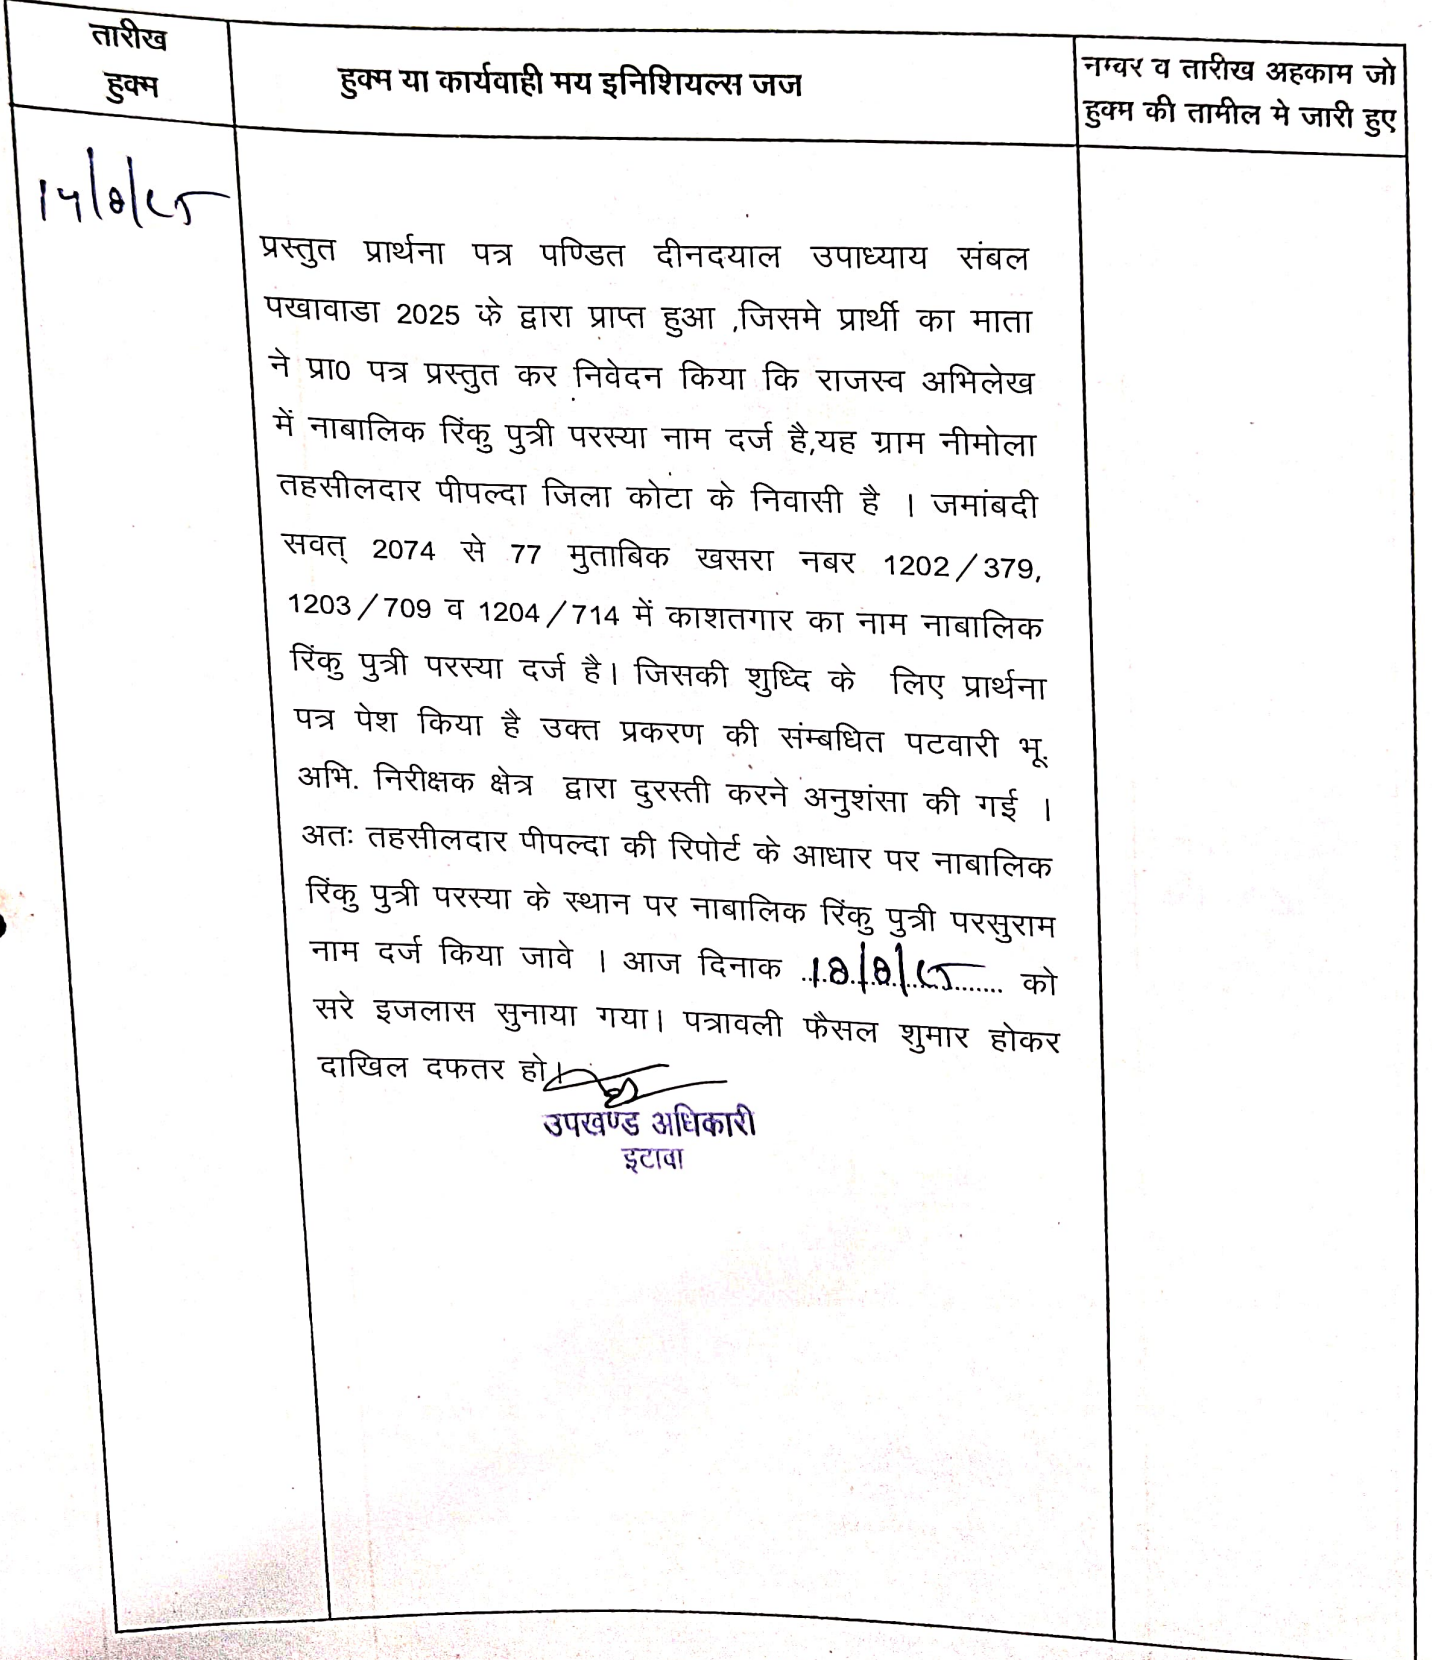 तारीख
हुक्म
हुक्म या कार्यवाही मय इनिशियल्स जज
नम्वर व तारीख अहकाम जो
हुक्म की तामील मे जारी हुए
प्रस्तुत प्रार्थना पत्र पण्डित दीनदयाल उपाध्याय संबल
पखावाडा 2025 के द्वारा प्राप्त हुआ ,जिसमे प्रार्थी का माता
ने प्रा0 पत्र प्रस्तुत कर निवेदन किया कि राजस्व अभिलेख
में नाबालिक रिंकु पुत्री परस्या नाम दर्ज है,यह ग्राम नीमोला
तहसीलदार पीपल्दा जिला कोटा के निवासी है । जमांबदी
सवत् 2074 से 77 मुताबिक खसरा नबर 1202/379,
1203/709 व 1204/714 में काशतगार का नाम नाबालिक
रिंकु पुत्री परस्या दर्ज है। जिसकी शुध्दि के लिए प्रार्थना
पत्र पेश किया है उक्त प्रकरण की संम्बधित पटवारी भू.
अभि. निरीक्षक क्षेत्र द्वारा दुरस्ती करने अनुशंसा की गई ।
अतः तहसीलदार पीपल्दा की रिपोर्ट के आधार पर नाबालिक
रिंकु पुत्री परस्या के स्थान पर नाबालिक रिंकु पुत्री परसुराम
नाम दर्ज किया जावे । आज दिनाक ..18/8/25.. को
सरे इजलास सुनाया गया। पत्रावली फैसल शुमार होकर
दाखिल दफतर हो।
उपखण्ड अधिकारी
इटावा